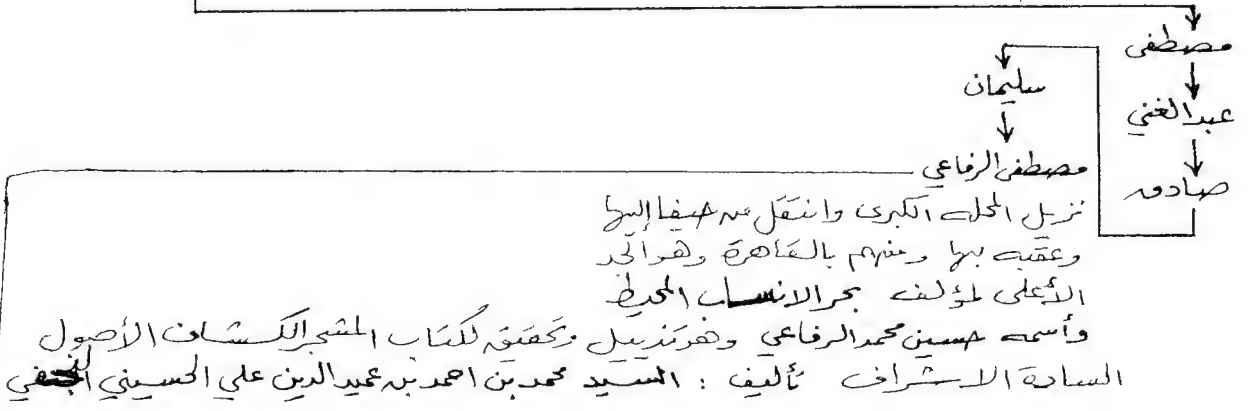 مصطفى
عبدالغني
صادق
سليمان
مصطفى الرفاعي
نزيل المحله الكبرى وانتقل من حيفا إليها
وعقبه بها ومنهم بالقاهرة وهو الجد
الأعلى لمؤلف بحر الانساب المحيط
وأسمه حسين محمد الرفاعي وهو تذييل وتحقيق لكتاب المشجر الكشاف الأصول
السادة الاشراف تأليف : السيد محمد بن احمد بن عميد الدين علي الحسيني النجفي